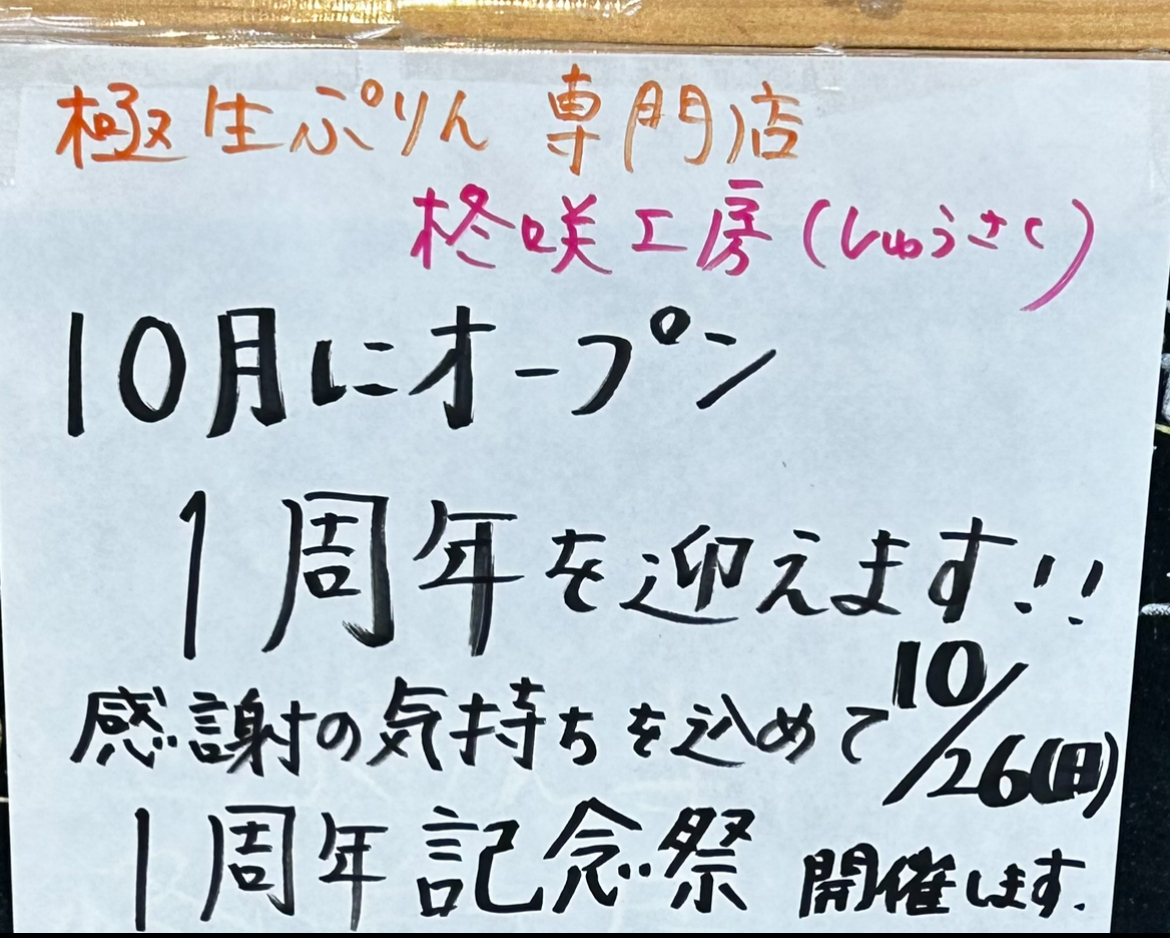 極生ぷりん 専門店
柊咲工房(しゅうさく)
10月にオープン
1周年を迎えます!!
感謝の気持ちを込めて10/26(日)
1周年記念祭 開催します.